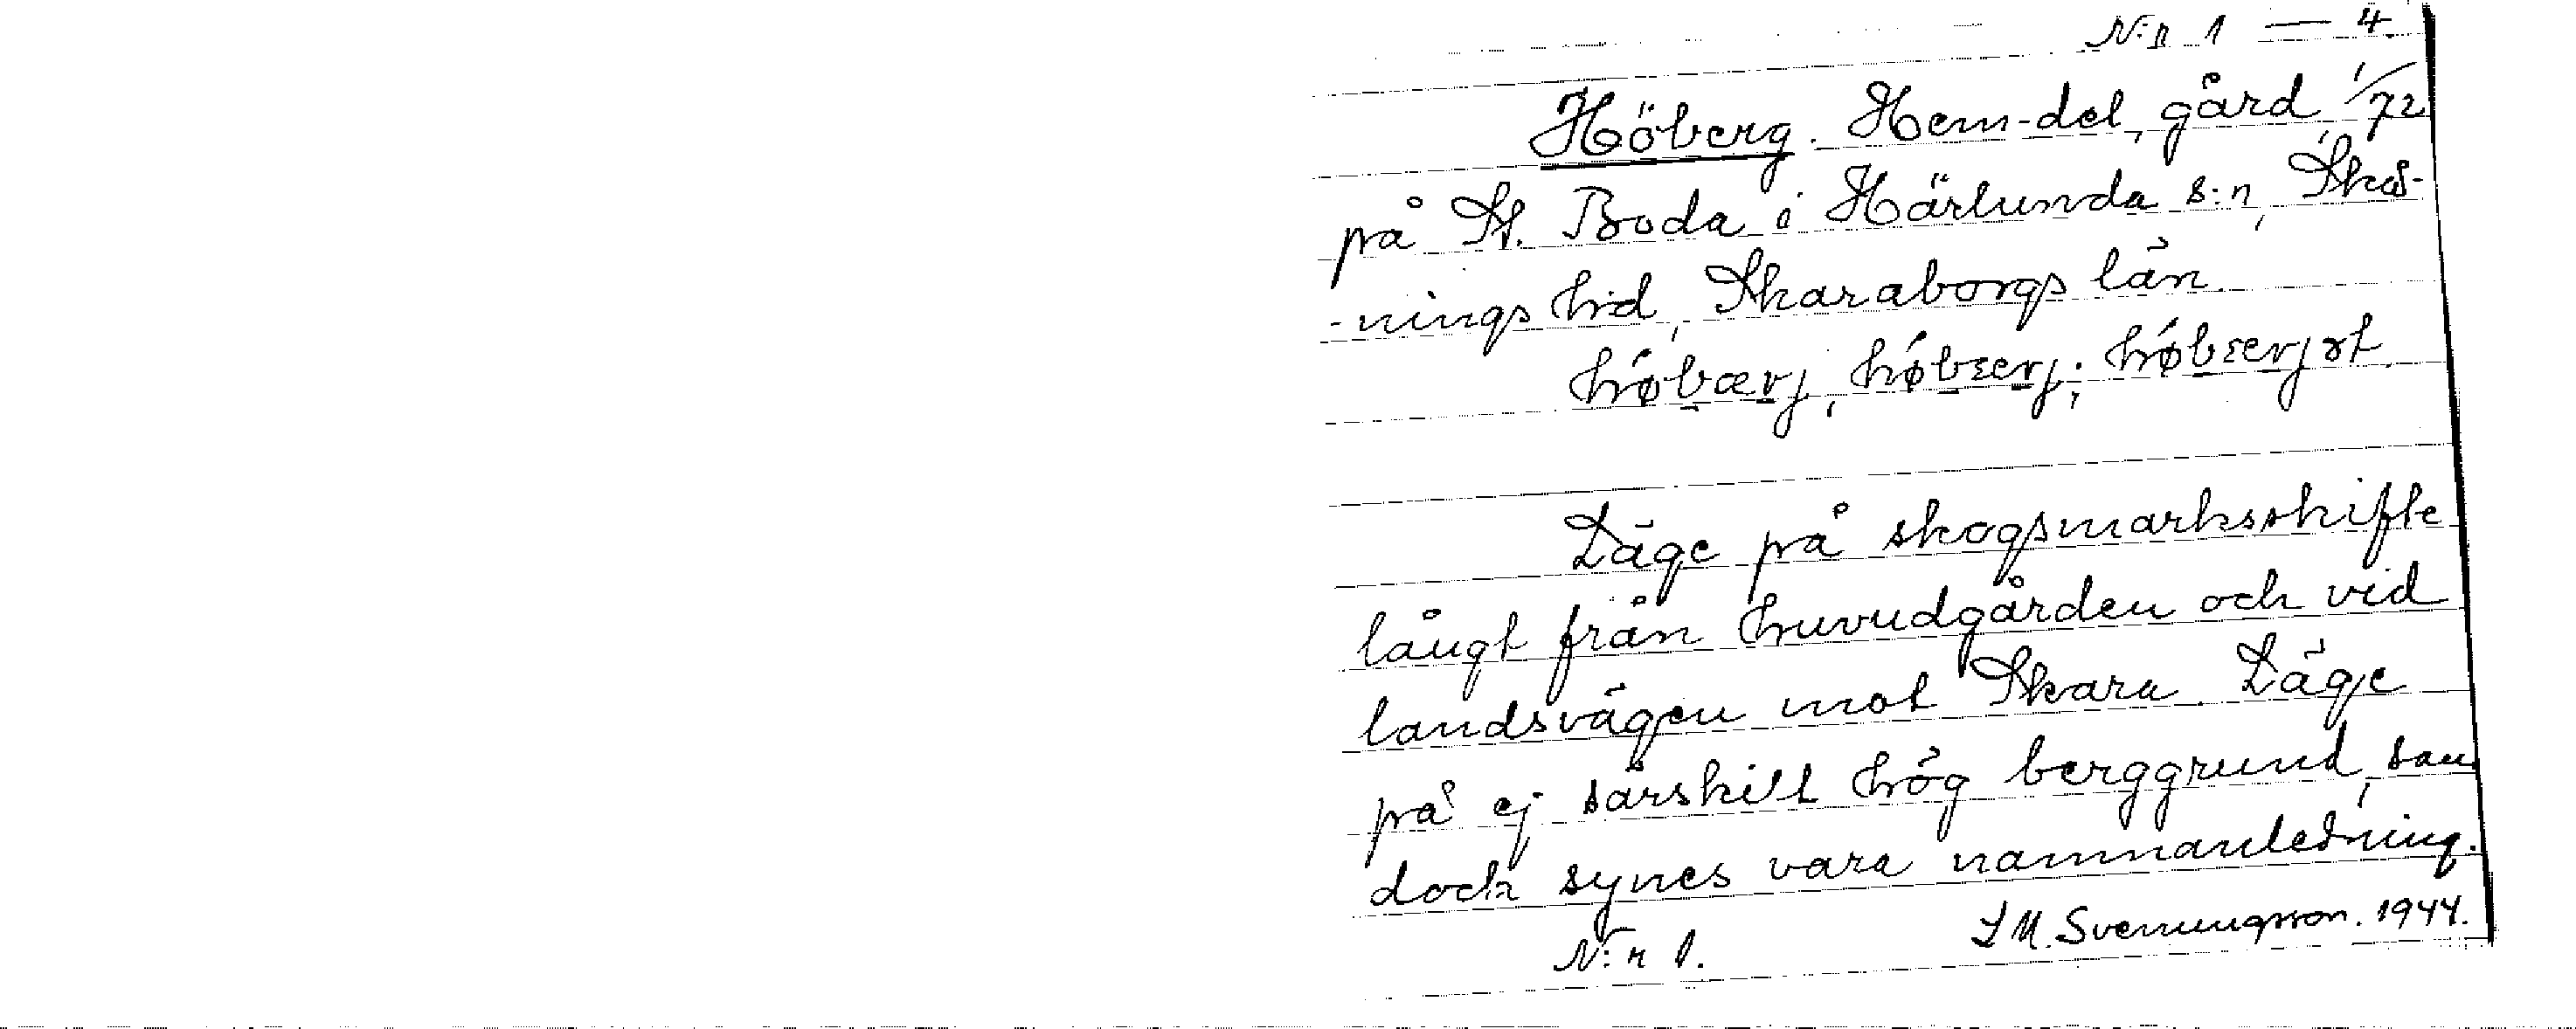 N:r 1 — 4.
Höberg. Hem-del, gård 1/72
på St. Boda i Härlunda s:n, Skå-
-nings hd, Skaraborgs län.
Läge på skogsmarksskifte
långt från huvudgården och vid
landsvägen mot Skara. Läge
på ej särskilt hög berggrund, som
dock synes vara namnanledning.
N:r 1. Svenungsson. 1944.